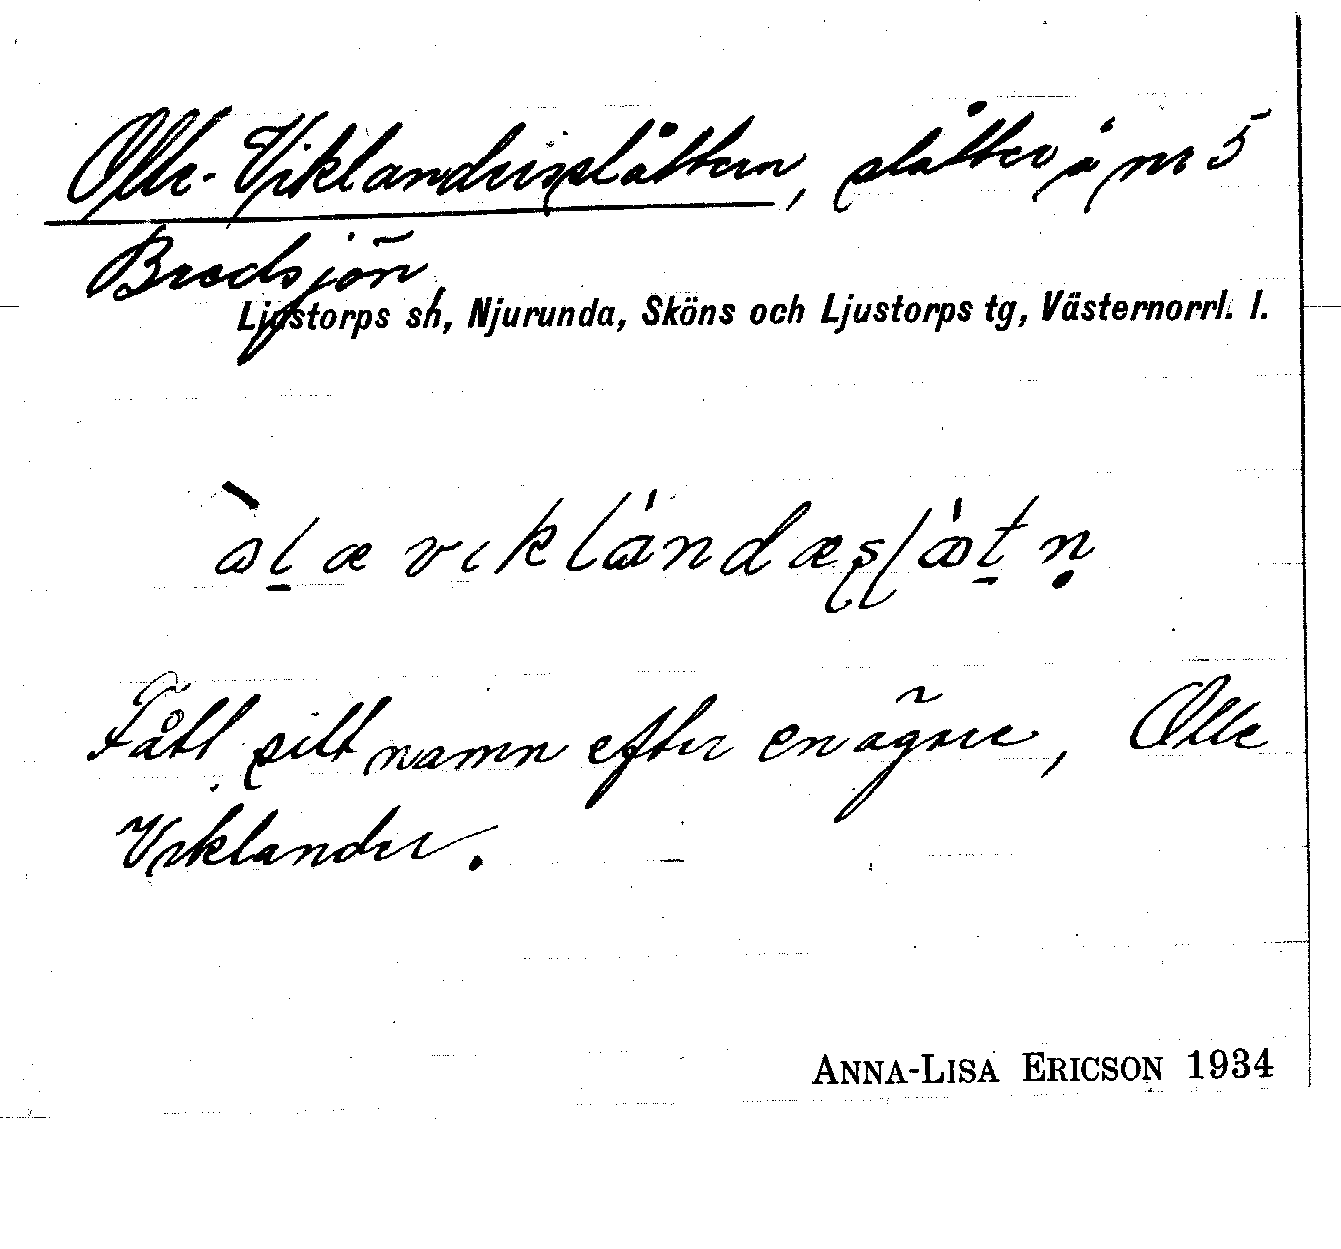 Olle-Viklandersslåttern, slåtter å nr 5
Bredsjön
Ljustorps sn, Njurunda, Sköns och Ljustorps tg, Västernorrl. l.
Fått sitt namn efter en ägare, Olle
Viklander.
ANNA-LISA ERICSON 1934